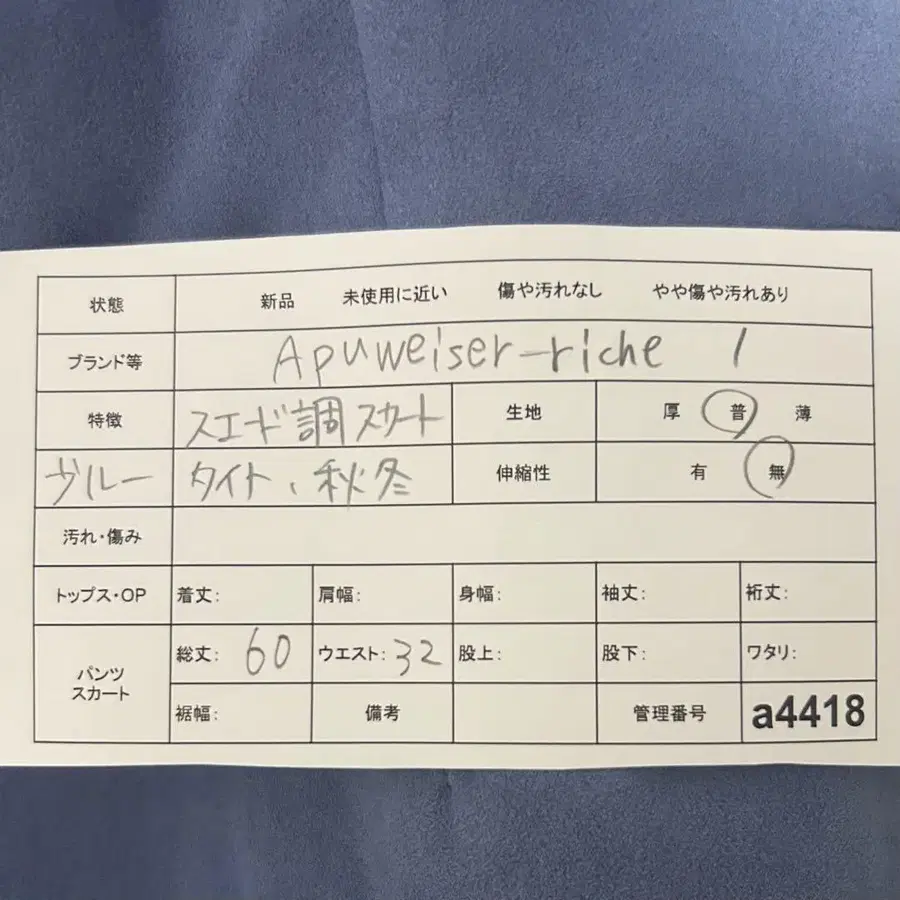 状態 新品 未使用に近い 傷や汚れなし やや傷や汚れあり
ブランド等 Apuweiser-riche 1
特徴 スエード調スカート 生地 厚 普 薄
ブルー タイト、秋冬 伸縮性 有 無
汚れ・傷み
トップス・OP 着丈: 肩幅: 身幅: 袖丈: 裄丈:
パンツ スカート 総丈: 60 ウエスト: 32 股上: 股下: ワタリ:
裾幅: 備考 管理番号 a4418